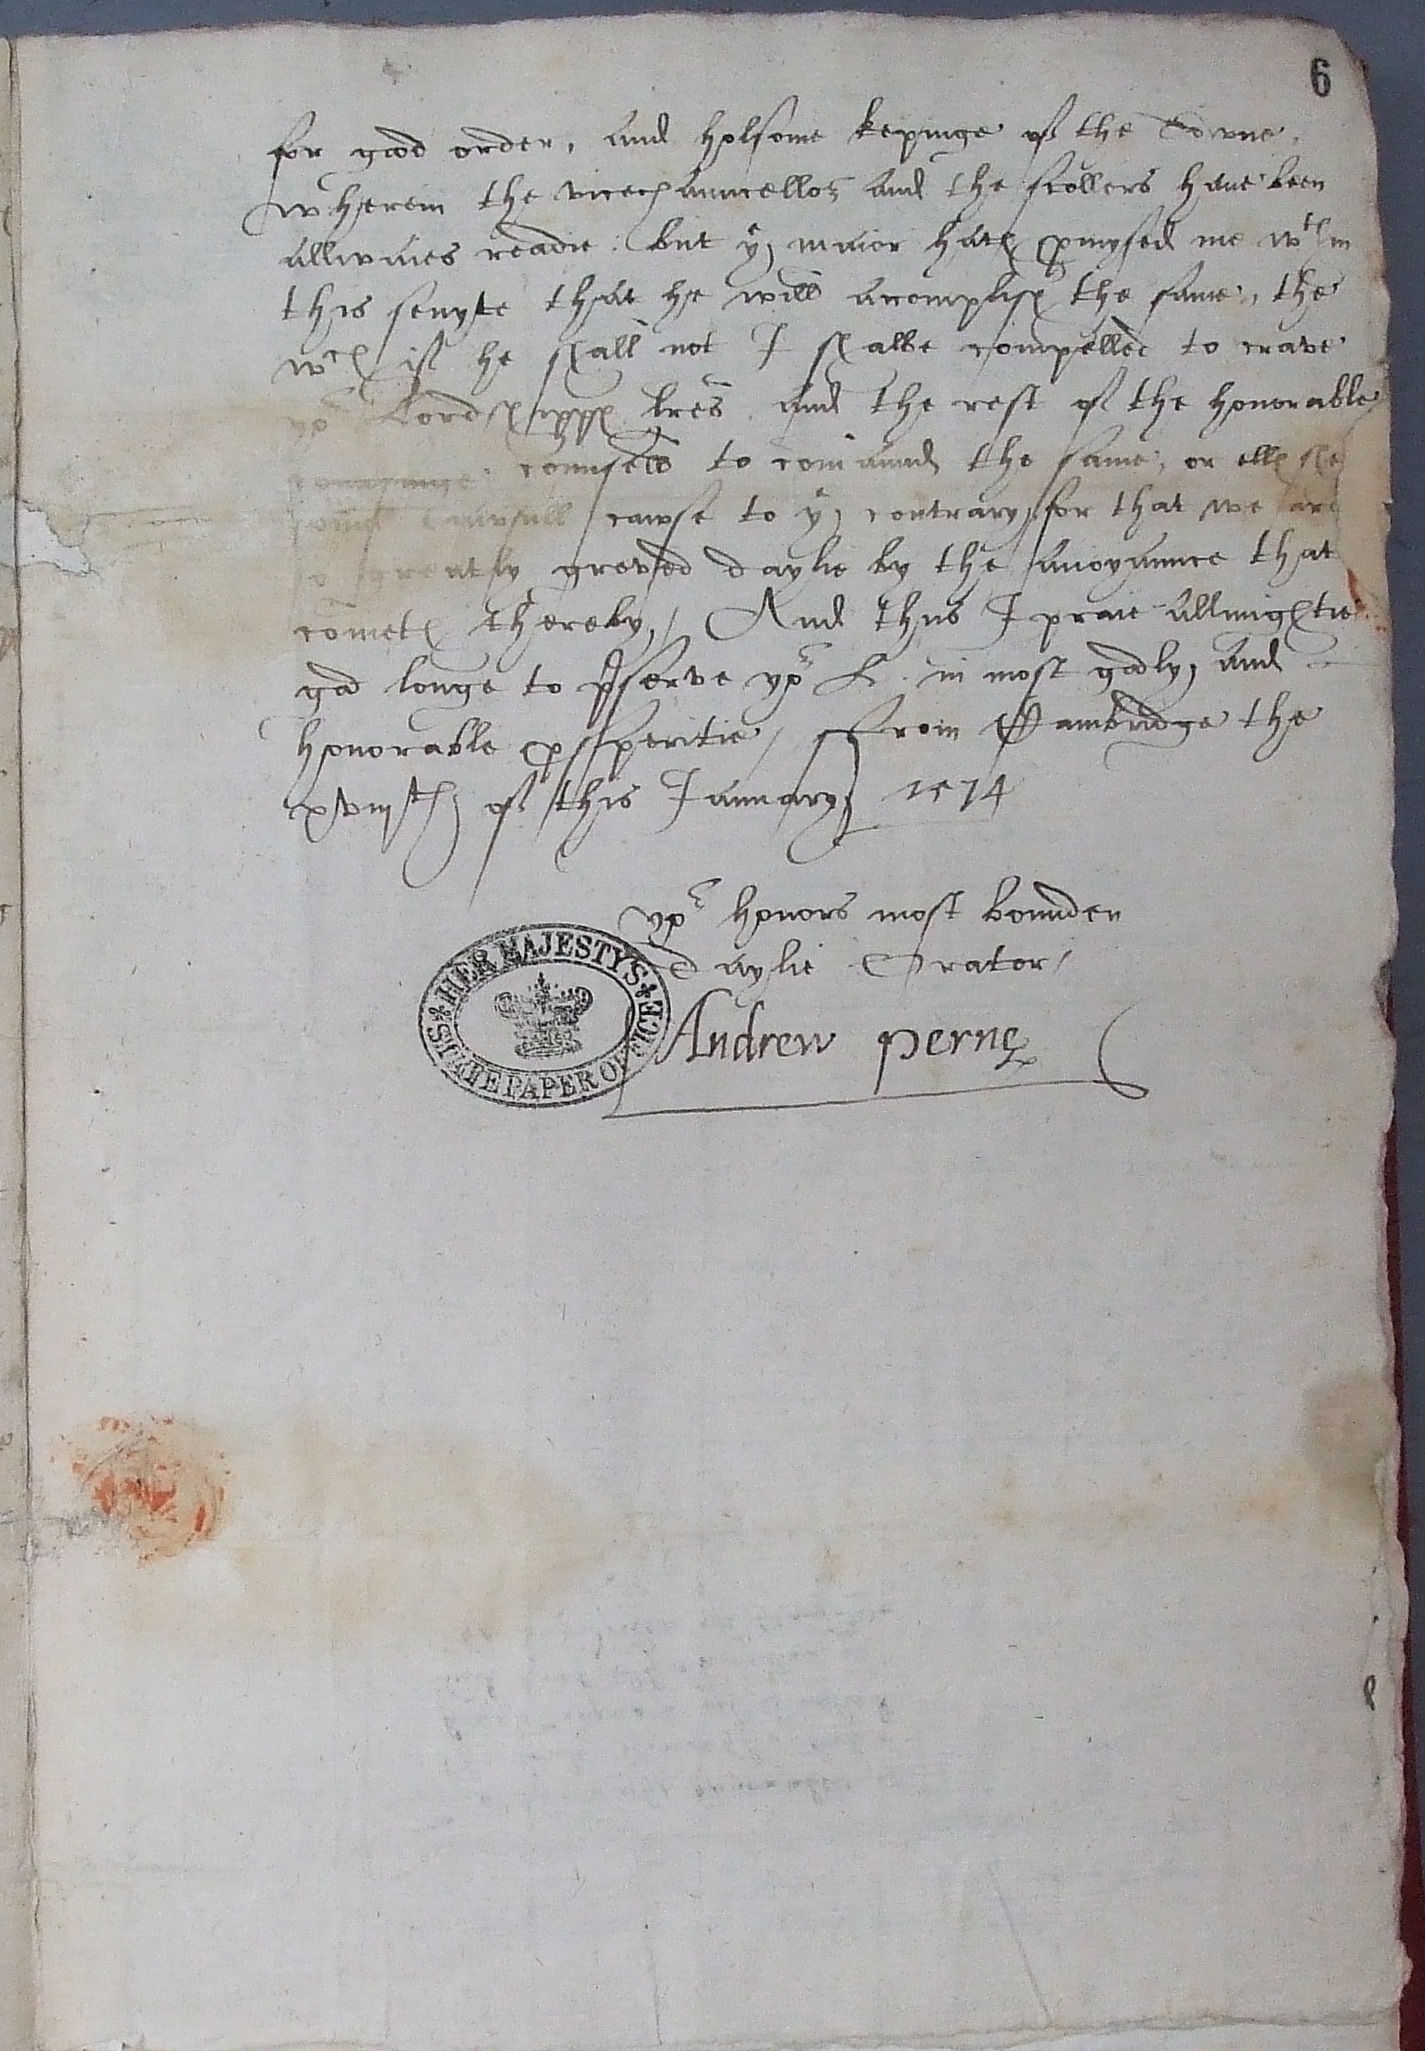 6
for good order, and holsome kepinge of the Towne,
wherein the vicechauncellor and the scollers have been
allwaies readie. but yͤ maior hath promysed me wᵗʰin
this senyte that he will accomplish the same, the
wᶜʰ if he shall not I shalbe compelled to crave
yoʳ Lordshippes lres and the rest of the honorable
counsell to comaund the same, or ells
lawfull cawse to yͤ contrary, for that we are
so greatly greved daylie by the anoyaunce that
cometh thereby / And thus I praie allmightie
god longe to pserve yoʳ L. in most godly, and
honorable psperitie / ffrom Cambridge the
xviijᵗʰ of this January 1574
yoʳ honors most bounden
daylie Orator /
Andrew Perne
HER MAJESTY'S STATE PAPER OFFICE